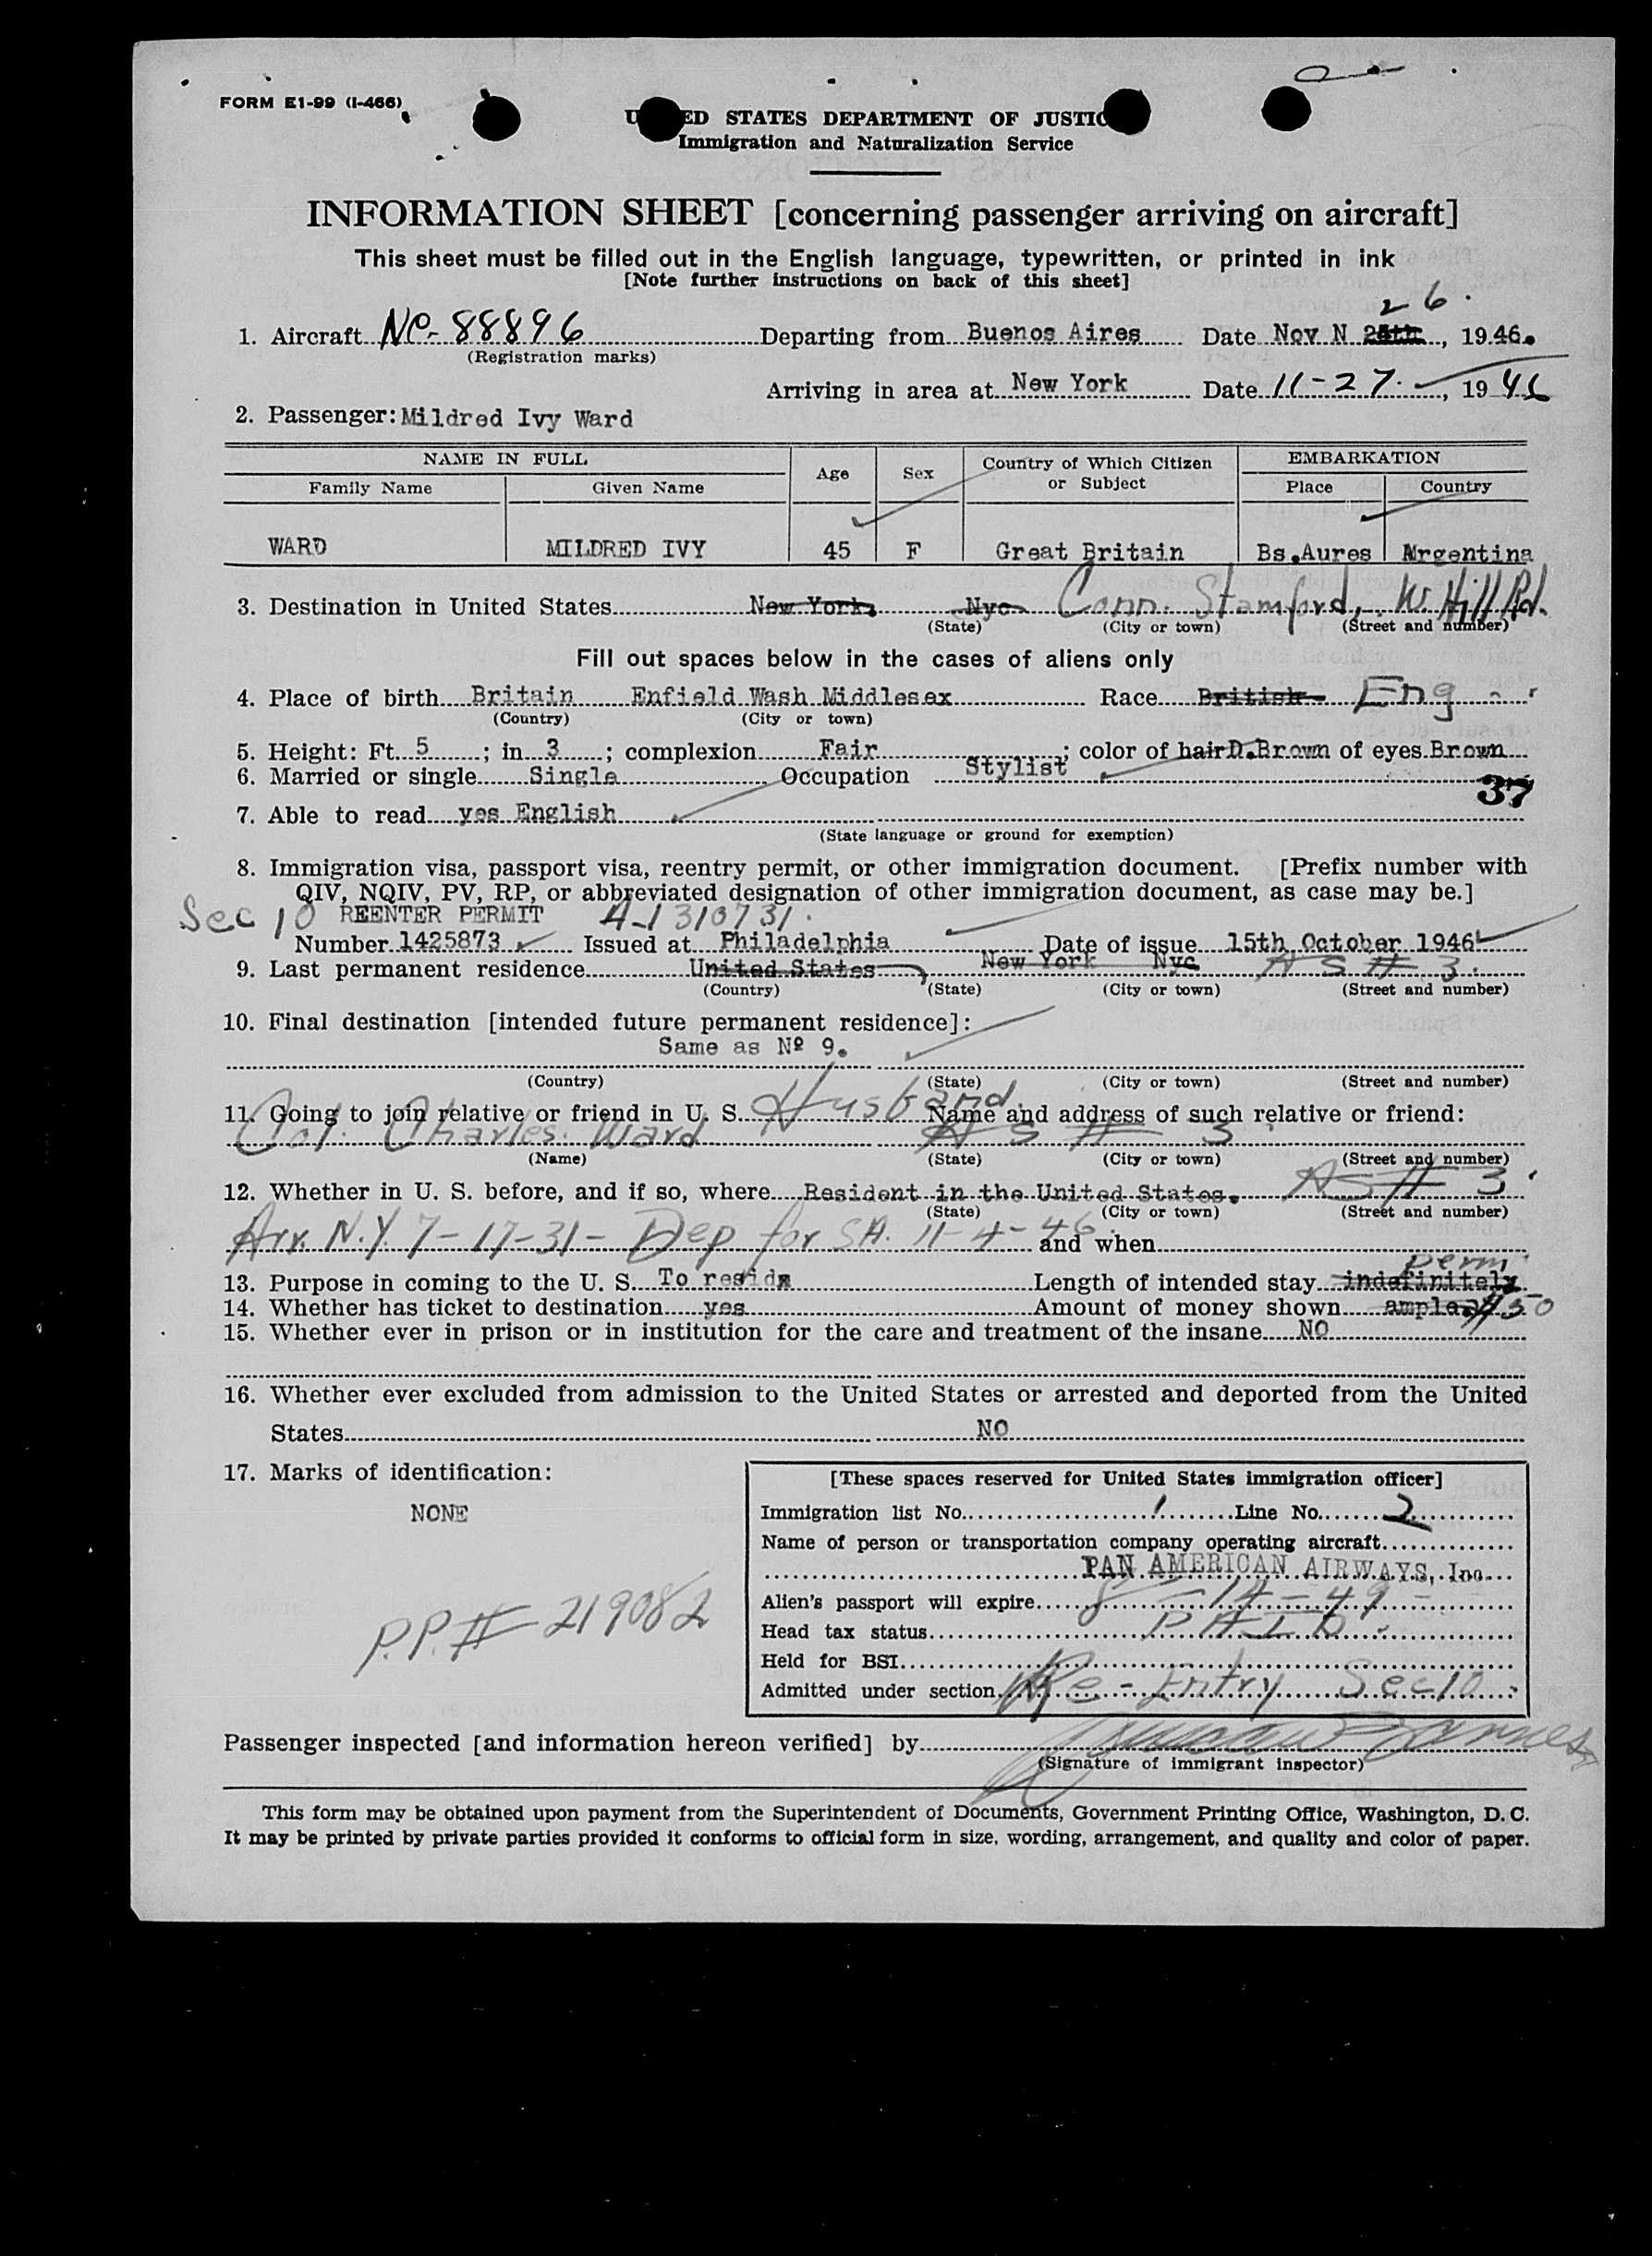 FORM E1-99 (I-466)
ED STATES DEPARTMENT OF JUSTIC
Immigration and Naturalization Service
INFORMATION SHEET [concerning passenger arriving on aircraft]
This sheet must be filled out in the English language, typewritten, or printed in ink
[Note further instructions on back of this sheet]
26.
1. Aircraft NC-88896 Departing from Buenos Aires Date Nov N , 1946.
(Registration marks)
Arriving in area at New York Date 11-27- , 1946
2. Passenger: Mildred Ivy Ward
NAME IN FULL Age Sex Country of Which Citizen or Subject EMBARKATION
Family Name Given Name Place Country
WARD MILDRED IVY 45 F Great Britain Bs.Aures Argentina
3. Destination in United States New York, Nyc Conn. Stamford, W. Hill Rd.
(State) (City or town) (Street and number)
Fill out spaces below in the cases of aliens only
4. Place of birth Britain Enfield Wash Middlesex Race British Eng
(Country) (City or town)
5. Height: Ft. 5 ; in. 3 ; complexion Fair ; color of hair D.Brown of eyes Brown
6. Married or single Single Occupation Stylist
37
7. Able to read yes English
(State language or ground for exemption)
8. Immigration visa, passport visa, reentry permit, or other immigration document. [Prefix number with
QIV, NQIV, PV, RP, or abbreviated designation of other immigration document, as case may be.]
Sec 10 REENTER PERMIT A-1310731.
Number 1425873 Issued at Philadelphia Date of issue 15th October 1946
9. Last permanent residence United States New York Nyc AS # 3.
(Country) (State) (City or town) (Street and number)
10. Final destination [intended future permanent residence]:
Same as Nº 9.
(Country) (State) (City or town) (Street and number)
11. Going to join relative or friend in U. S. Husband. Name and address of such relative or friend:
Col. Charles Ward AS # 3
(Name) (State) (City or town) (Street and number)
12. Whether in U. S. before, and if so, where Resident in the United States. AS # 3
(State) (City or town) (Street and number)
Arr. N.Y. 7-17-31- Dep for SA. 11-4-46. and when
perm
13. Purpose in coming to the U. S. To reside Length of intended stay indefinitely
14. Whether has ticket to destination yes Amount of money shown ample. $50
15. Whether ever in prison or in institution for the care and treatment of the insane NO
16. Whether ever excluded from admission to the United States or arrested and deported from the United
States NO
17. Marks of identification:
NONE
P.P.# 219082
[These spaces reserved for United States immigration officer]
Immigration list No. 1 Line No. 2
Name of person or transportation company operating aircraft
PAN AMERICAN AIRWAYS, Inc.
Alien's passport will expire 8-14-49
Head tax status PAID
Held for BSI
Admitted under section Re-Entry Sec 10
Passenger inspected [and information hereon verified] by
(Signature of immigrant inspector)
This form may be obtained upon payment from the Superintendent of Documents, Government Printing Office, Washington, D. C.
It may be printed by private parties provided it conforms to official form in size, wording, arrangement, and quality and color of paper.